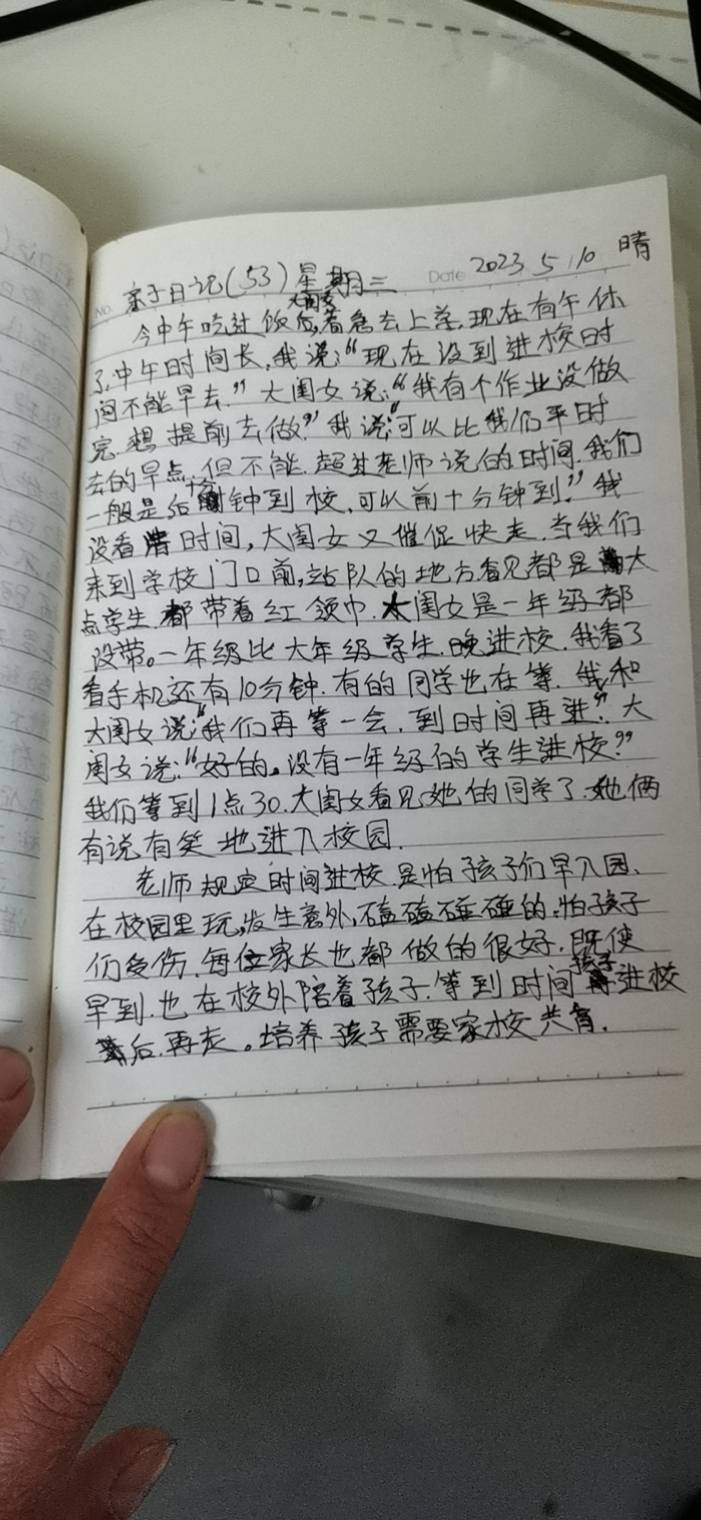 亲子日记(53)星期三 Date 2023 5 10 晴
No.
今中午吃过饭后,大闺女着急去上学,现在有午休
了,中午时间长,我说:“现在没到进校时
间不能早去.”大闺女说:“我有个作业没做
完.想提前去做.”我说:“可以比我们平时
去的早点,但不能.超过老师说的时间.我们
一般是后十分钟到校,可以前十分钟到.”我
没看时间,大闺女又催促快走.当我们
来到学校门口前,站队的地方看见都是大
点学生.都带着红领巾.大闺女是一年级都
没带。一年级比大年级学生.晚进校.我看了
看手机还有10分钟.有的同学也在等.我和
大闺女说:“我们再等一会.到时间再进”.大
闺女说:“好的。没有一年级的学生进校?”
我们等到1点30.大闺女看见她的同学了.她俩
有说有笑地进入校园.
老师规定时间进校.是怕孩子们早入园.
在校园里玩,发生意外,磕磕碰碰的.怕孩子
们受伤.每位家长也都做的很好.既使
早到.也在校外陪着孩子.等到时间孩子进校
后.再走。培养孩子需要家校共育.